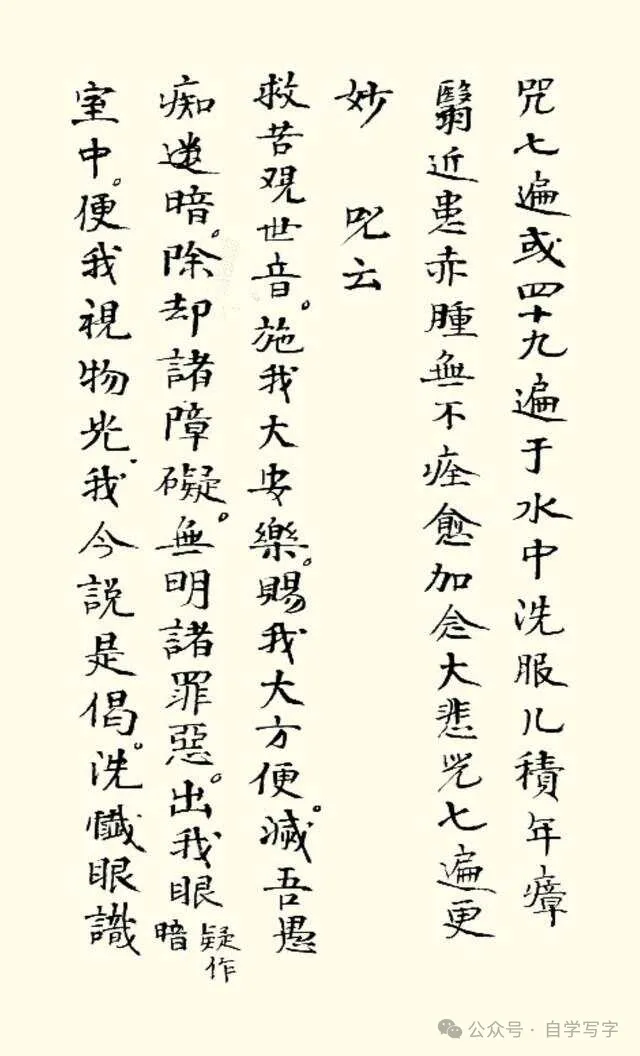 咒七遍或四十九遍于水中洗服凡積年瘴
翳近患赤腫無不痊愈加念大悲咒七遍更
妙 咒云
救苦观世音。施我大安樂。賜我大方便。滅吾愚
痴迷暗。除却諸障礙。無明諸罪惡。出我眼疑作暗
室中。便我視物光。我今説是偈。洗懺眼識
公众号·自学写字